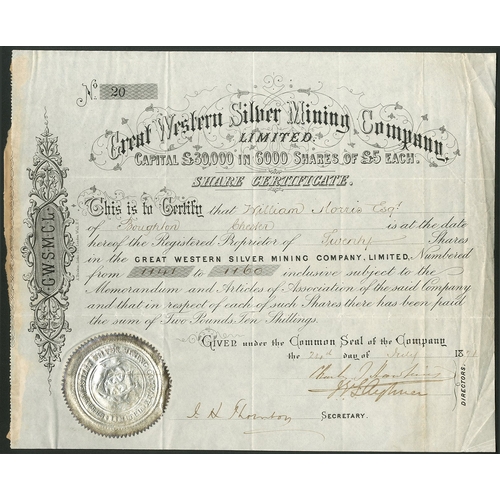 No. 20
Great Western Silver Mining Company,
LIMITED.
CAPITAL £30,000 IN 6000 SHARES OF £5 EACH.
SHARE CERTIFICATE.
This is to Certify that William Morris Esqr
of Boughton Chester is at the date
hereof the Registered Proprietor of Twenty Shares
in the GREAT WESTERN SILVER MINING COMPANY, LIMITED. Numbered
from 1141 to 1160 inclusive subject to the
Memorandum and Articles of Association of the said Company
and that in respect of each of such Shares there has been paid
the sum of Two Pounds, Ten Shillings.
GIVEN under the Common Seal of the Company
the 24th day of July 18
DIRECTORS.
J H Thornton SECRETARY.
G.W.S.M.C.L.